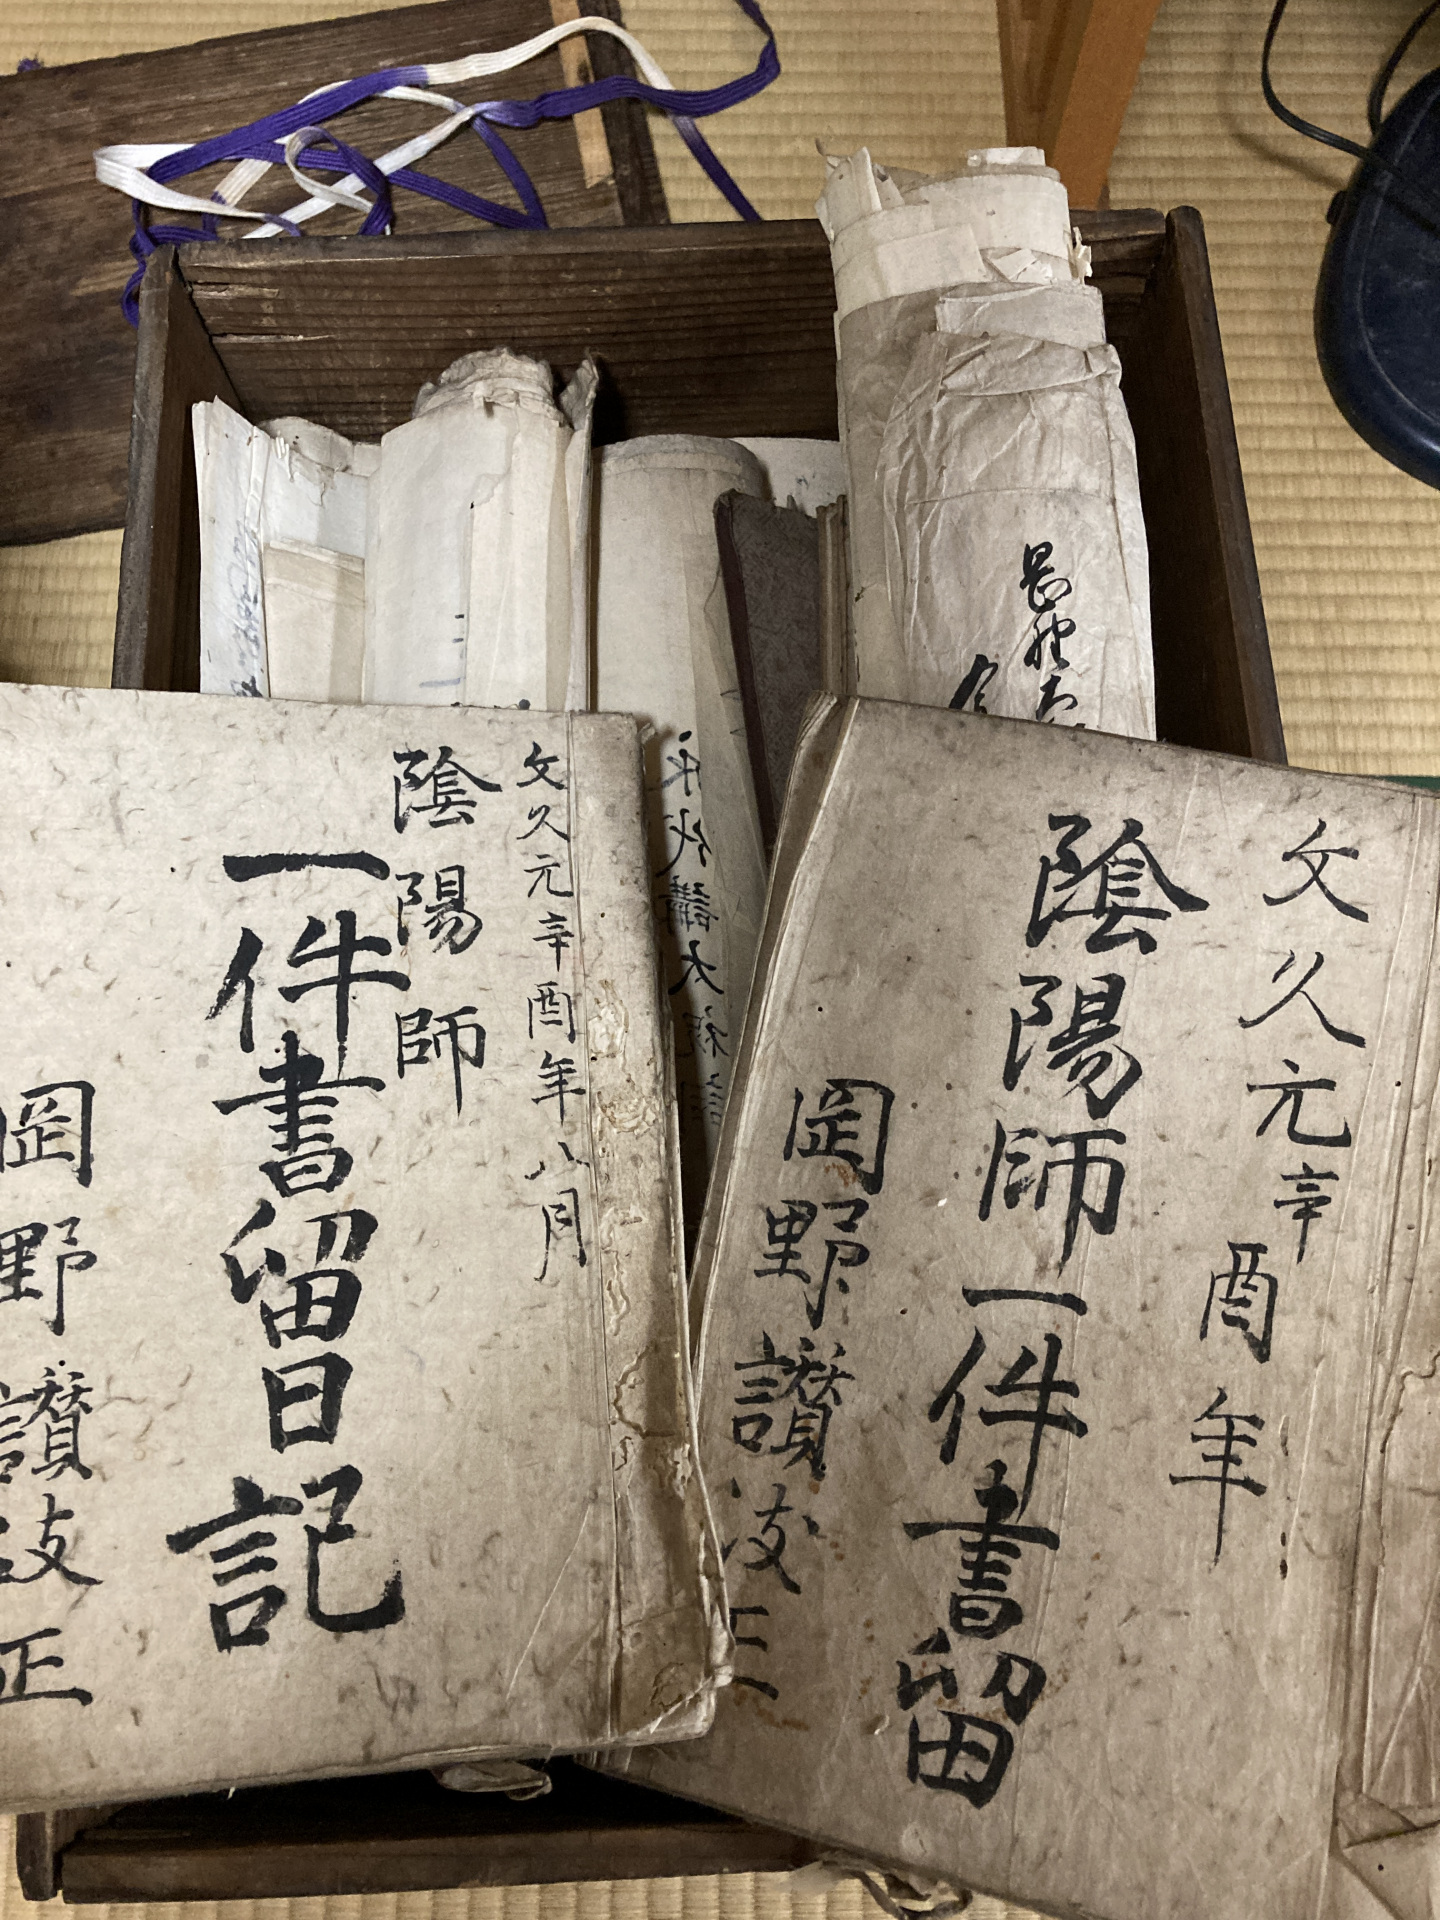 文久元辛酉年
陰陽師一件書留
岡野讃岐正
文久元辛酉年八月
陰陽師
一件書留日記
岡野讃岐正